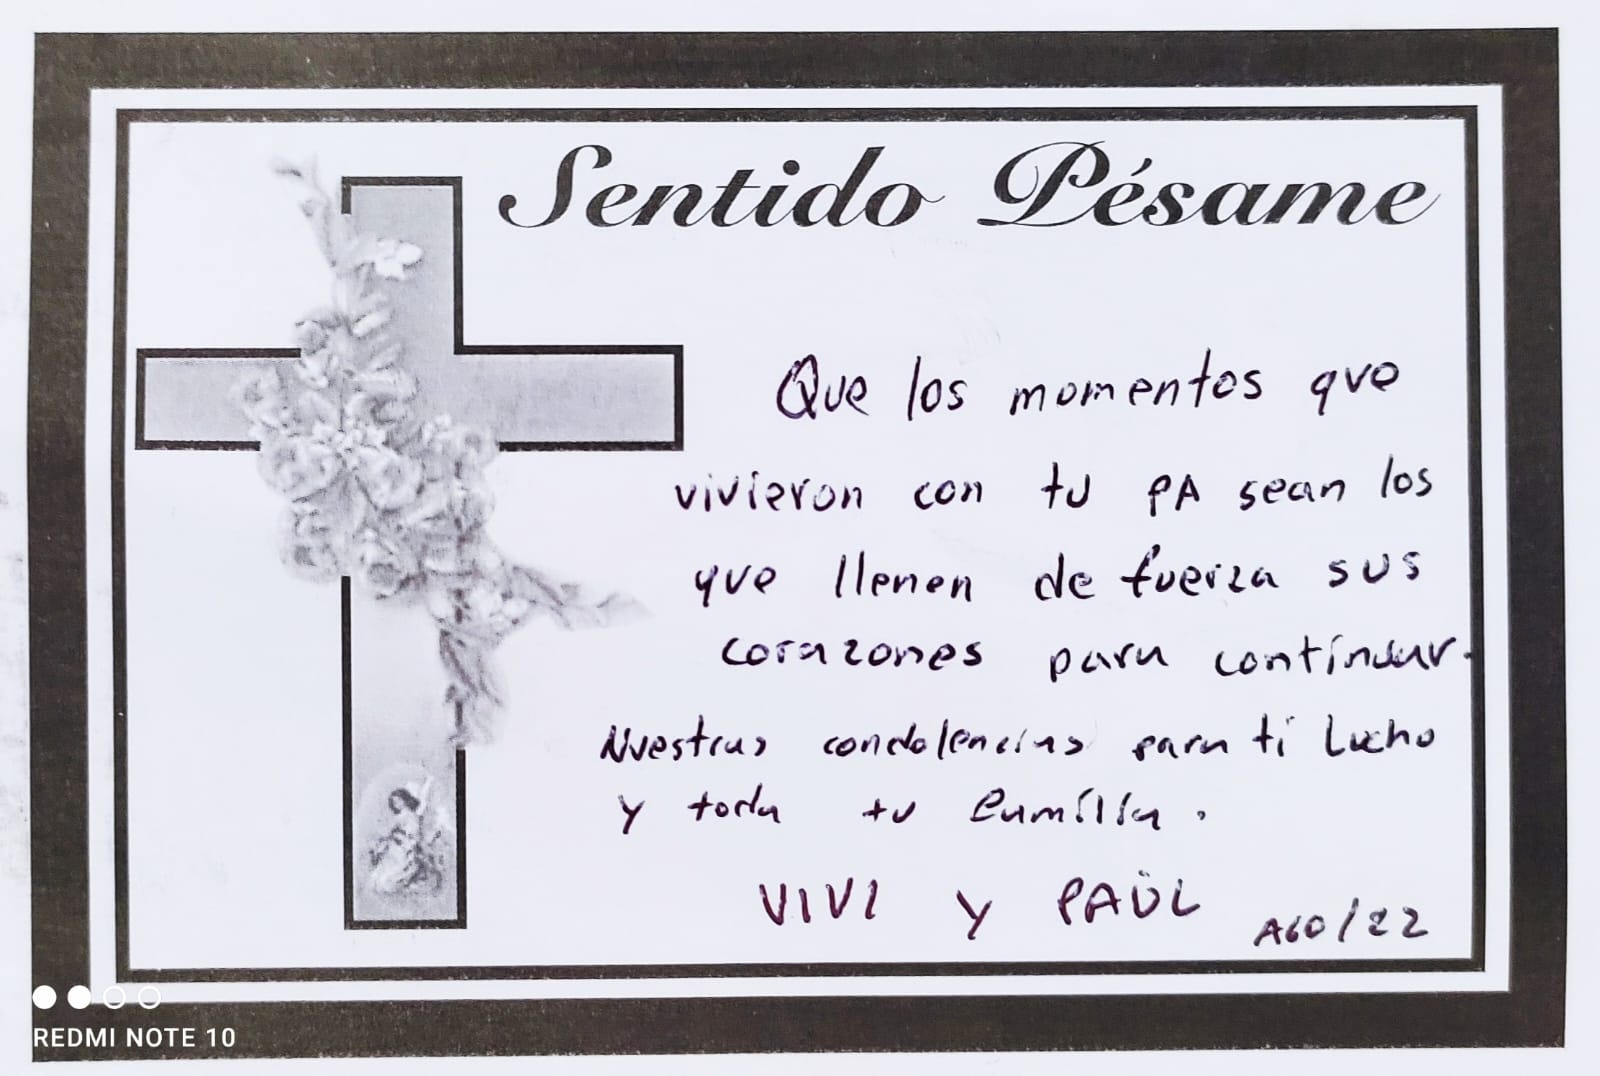 Sentido Pésame
Que los momentos que
vivieron con tu PA sean los
que llenen de fuerza sus
corazones para continuar.
Nuestras condolencias para ti Lucho
y toda tu familia.
VIVI y PAÜL
AGO/22
REDMI NOTE 10